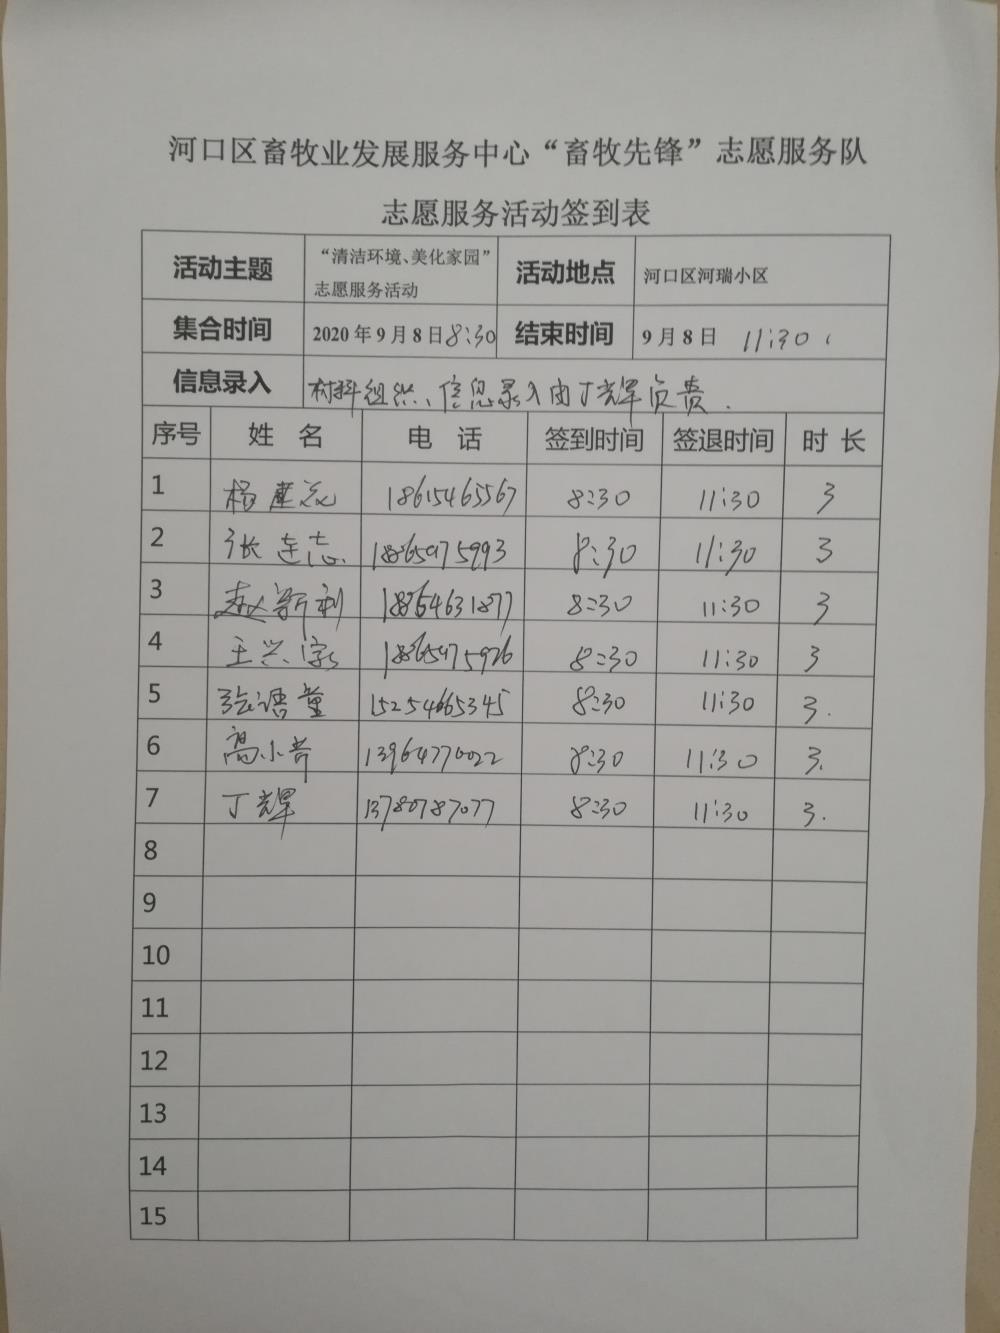 河口区畜牧业发展服务中心“畜牧先锋”志愿服务队
志愿服务活动签到表
活动主题 “清洁环境、美化家园” 志愿服务活动 活动地点 河口区河瑞小区
集合时间 2020年9月8日8:30 结束时间 9月8日 11:30
信息录入 材料组织、信息录入由丁辉负责.
序号 姓 名 电 话 签到时间 签退时间 时 长
1 杨建 18615465567 8:30 11:30 3
2 张连志 18865475993 8:30 11:30 3
3 赵新利 18854631877 8:30 11:30 3
4 王兴 18865475926 8:30 11:30 3
5 语童 15254665345 8:30 11:30 3.
6 高小 13964770022 8:30 11:30 3.
7 丁辉 13780787077 8:30 11:30 3.
8
9
10
11
12
13
14
15